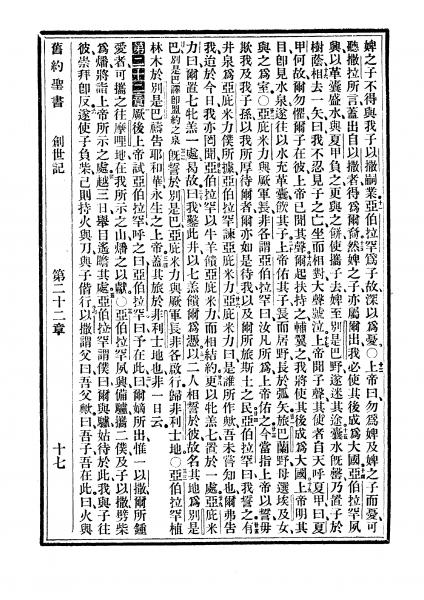 婢之子不得與我子以撒嗣業亞伯拉罕爲子故深以爲憂○上帝曰勿爲婢及婢之子而憂可
聽撒拉所言蓋出自以撒者得爲爾裔然婢之子亦屬爾出我必使其後成爲大國亞伯拉罕夙
興以革囊盛水與夏甲負之更與之餅使攜子去婢至別是巴野遂迷其途囊水既罄乃置子於
樹蔭相去一矢曰我不忍見子之亡坐而相對大聲號泣上帝聞子聲其使者自天呼夏甲曰夏
甲何故勿懼爾子在彼上帝已聞其聲爾起扶持之輔翼之我將使其後成爲大國上帝明其
目卽見水泉遂往以水充革囊飲其子上帝佑其子長而居野長於弧矢旅巴蘭野母選埃及女
與之爲室○亞庇米力與厥軍長非各謂亞伯拉罕曰汝凡所爲上帝佑之今當指上帝以誓毋
欺我及我子孫以我所厚待爾者爾亦如是待我以及爾所旅斯土之民亞伯拉罕曰我誓之有
井泉爲亞庇米力僕所據亞伯拉罕諫亞庇米力亞庇米力曰是誰所作歟吾未嘗知也爾弗告
我迨於今日我亦罔聞亞伯拉罕以牛羊饋亞庇米力而相結約更以牝羔七置於一處亞庇米
力曰爾置七牝羔一處曷故曰我鑿此井以七羔饋爾爲憑以二人相誓於彼故名其地爲別是
巴別是巴譯卽盟約之泉既誓於別是巴亞庇米力與厥軍長非各啟行歸非利士地○亞伯拉罕植
林木於別是巴禱告耶和華永生之上帝蓋其旅於非利士地也非一日云
第二十二章厥後上帝試亞伯拉罕呼之曰亞伯拉罕曰予在此曰爾嫡所出惟一以撒爾所鍾
愛者可攜之往摩哩地在我所示之山燔之以獻○亞伯拉罕夙興備驢攜二僕及子以撒劈柴
爲燔將詣上帝所示之處越三日舉目遙瞻其處亞伯拉罕謂僕曰爾與驢姑待於此我與子往
彼崇拜卽反遂使子負柴己則持火與刀與子偕行以撒謂父曰吾父歟曰吾子吾在此曰火與
舊約聖書 創世記 第二十二章 十七